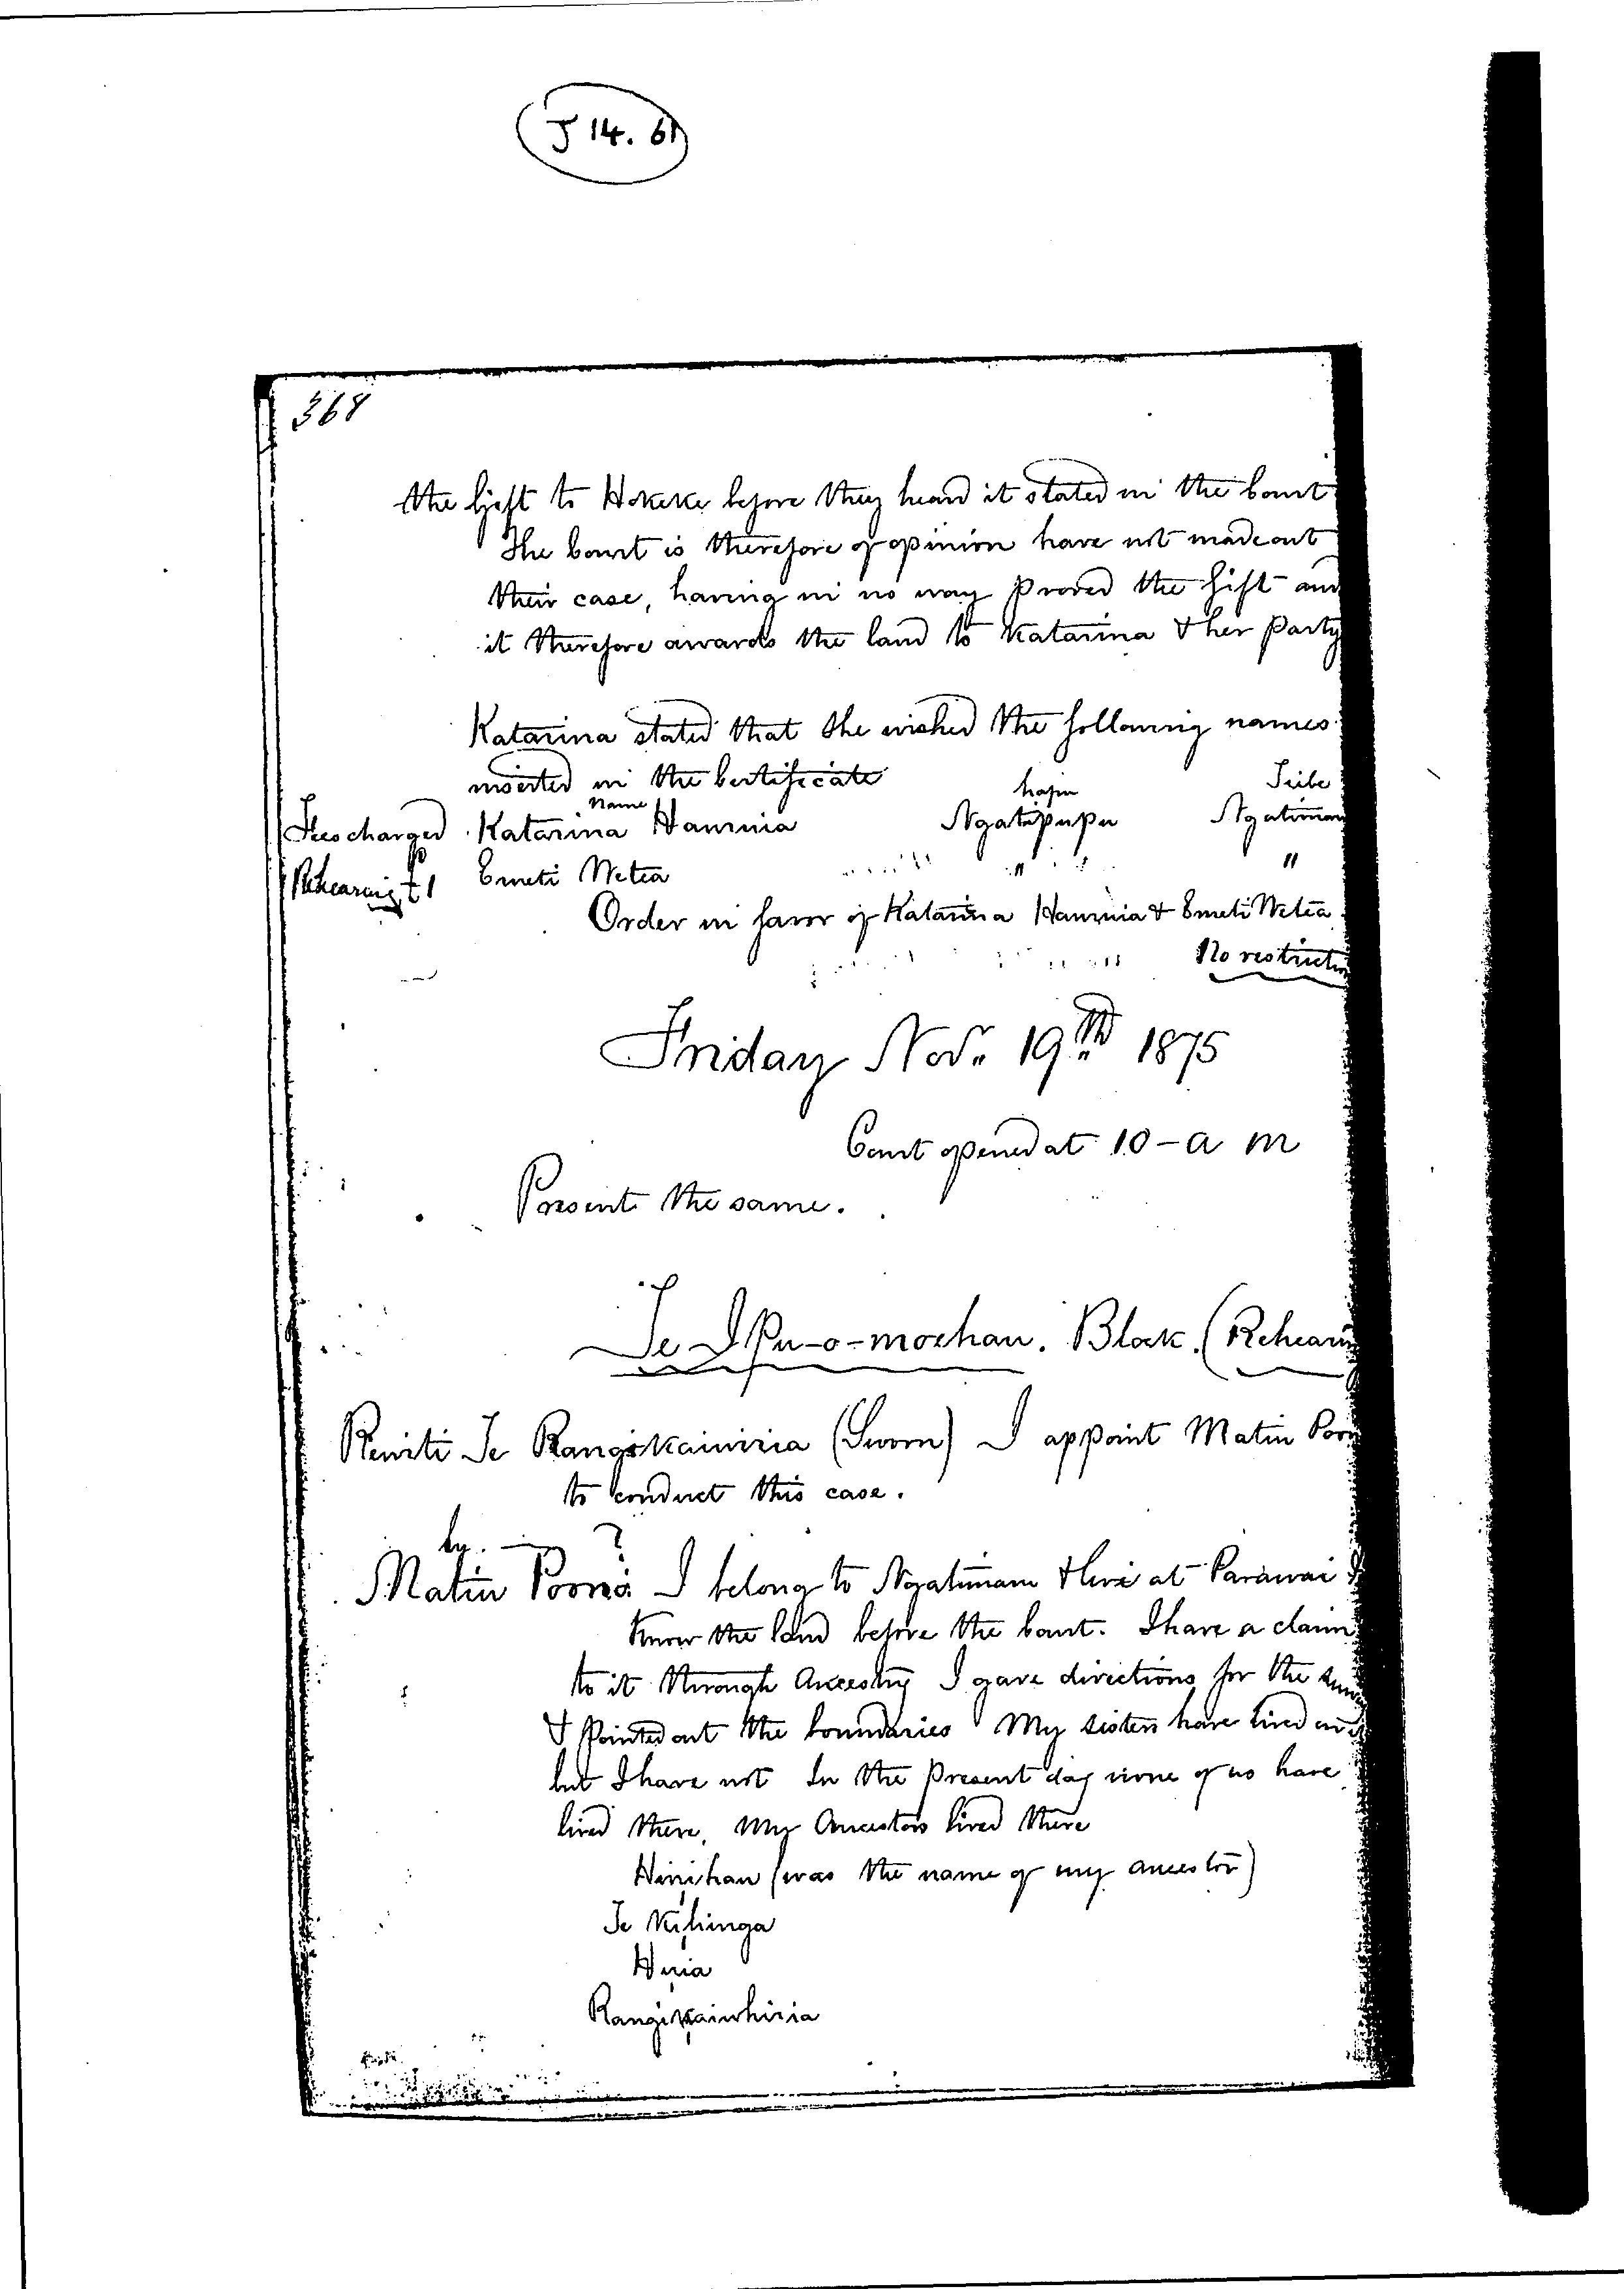 J 14. 61
368
the Gift to Hokeke before they heard it stated in the Court
The Court is therefore of opinion have not made out
their case, having in no way proved the Gift and
it therefore awards the land to Katarina & her party
Katarina stated that she wished the following names
inserted in the Certificate
Name hapu Tribe
Fees charged Katarina Haumia Ngatipupu Ngatimaru
Rehearing £1 Emeti Wetea " "
Order in favor of Katarina Haumia & Emeti Wetea
No restriction
Friday Nov. 19th 1875
Court opened at 10 - a m
Present the same.
Te Ipu-o-moehau. Block. (Rehearing
Reniti Te Rangikaiwiria (Sworn) I appoint Matiu
to conduct this case.
by. — ?
Matiu Poono I belong to Ngatimaru & live at Parawai I
know the land before the Court. I have a claim
to it through Ancestry I gave directions for the
I pointed out the boundaries My sisters have lived on it
but I have not In the present day none of us have
lived there, My Ancestors lived there
Hinihau (was the name of my ancestor)
Te Kihinga
Huia
Rangikaiwhiria